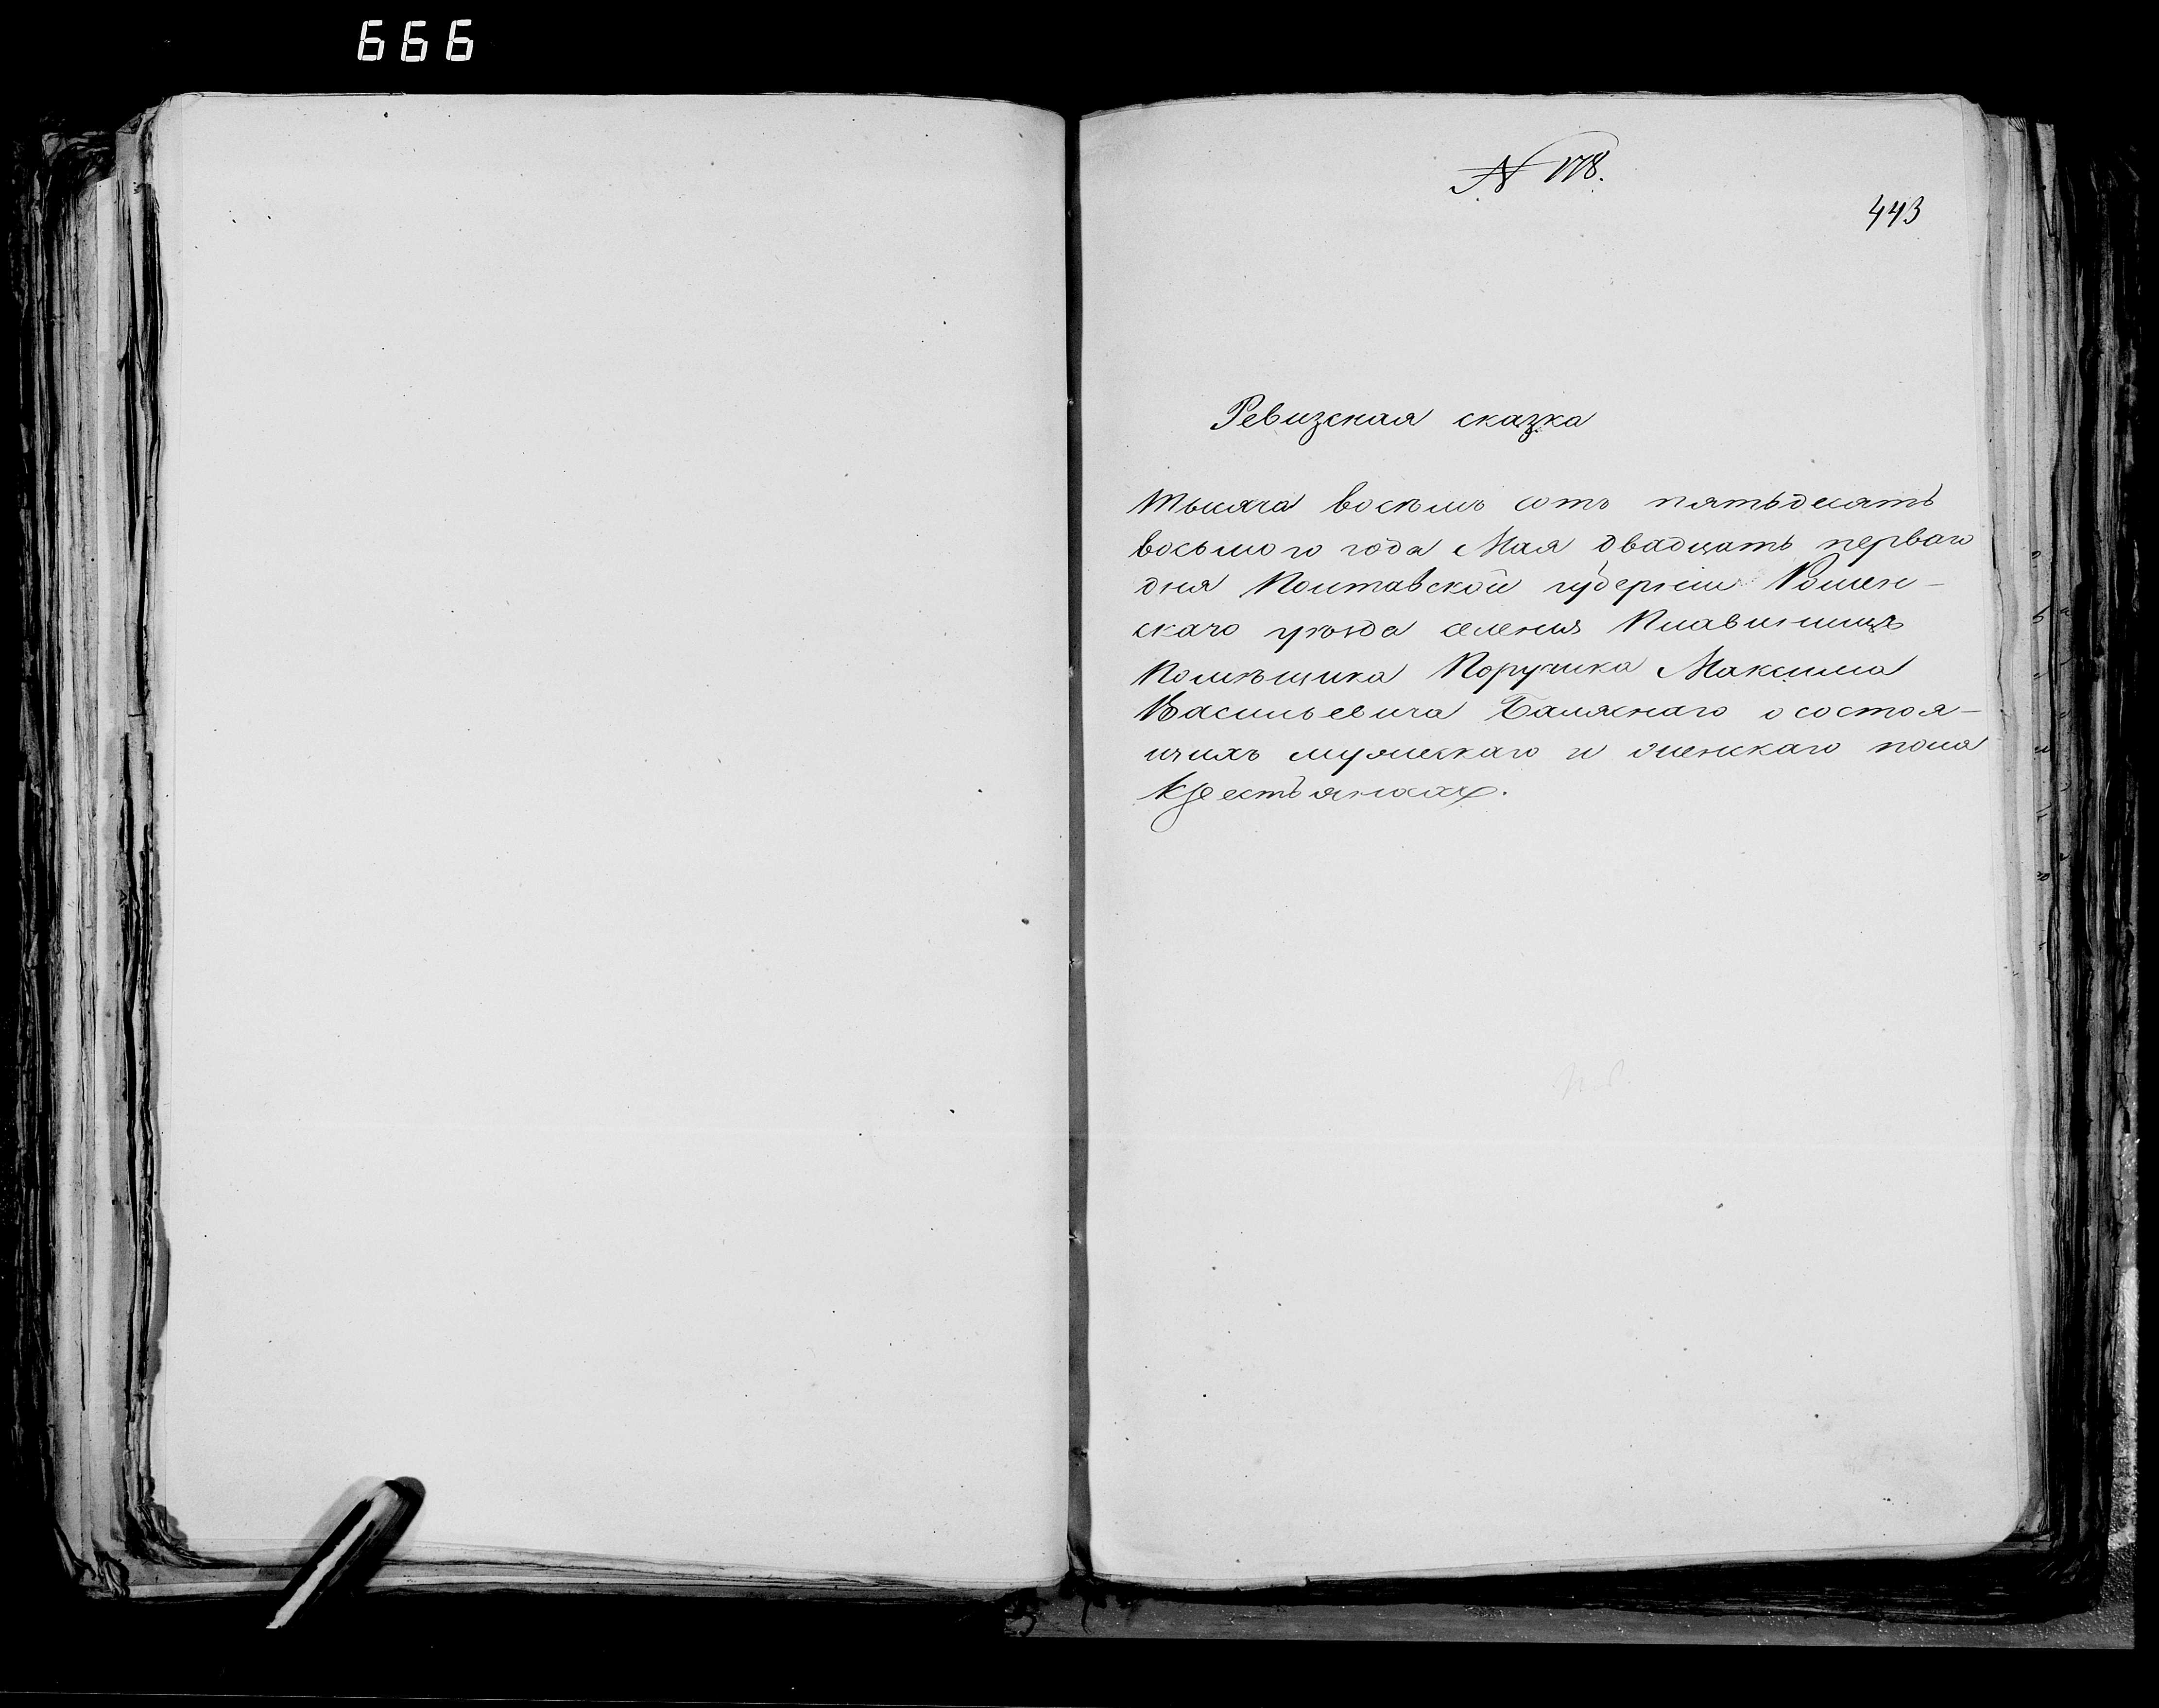 666
№ 178.
443
Ревизская сказка
Тысяча восѣмъ сотъ пятьдесятъ
восьмого года Мая двадцать перваго
дня Полтавской губерніи Ромен-
скаго уѣзда селенія Плавинищъ
Помѣщика Поручика Максима
Васильевича Балясного о состоя-
щихъ мужескаго и женскаго пола
Крестьянахъ.